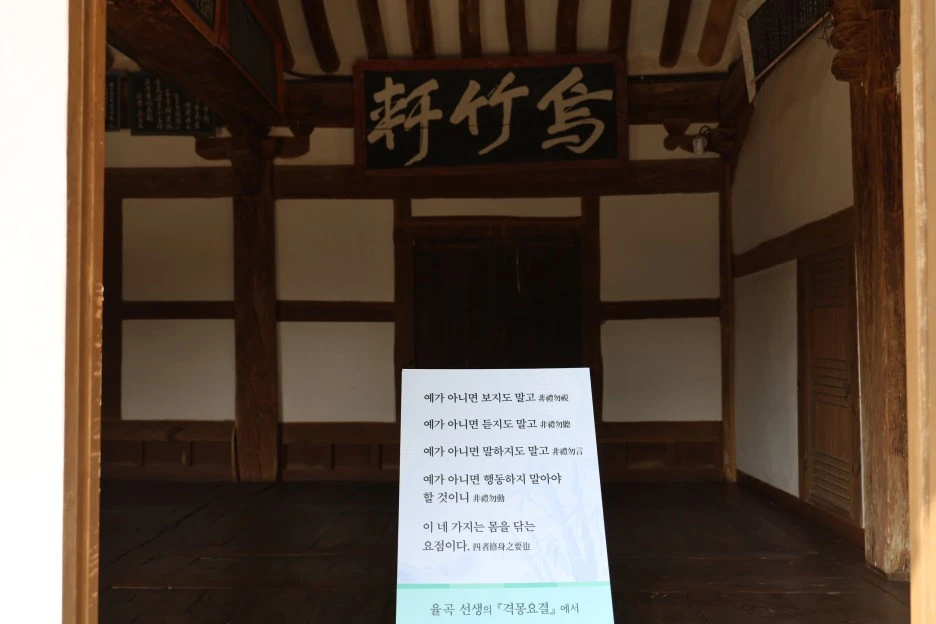 烏竹軒
예가 아니면 보지도 말고 非禮勿視
예가 아니면 듣지도 말고 非禮勿聽
예가 아니면 말하지도 말고 非禮勿言
예가 아니면 행동하지 말아야
할 것이니 非禮勿動
이 네 가지는 몸을 닦는
요점이다. 四者修身之要也
율곡 선생의 『격몽요결』에서